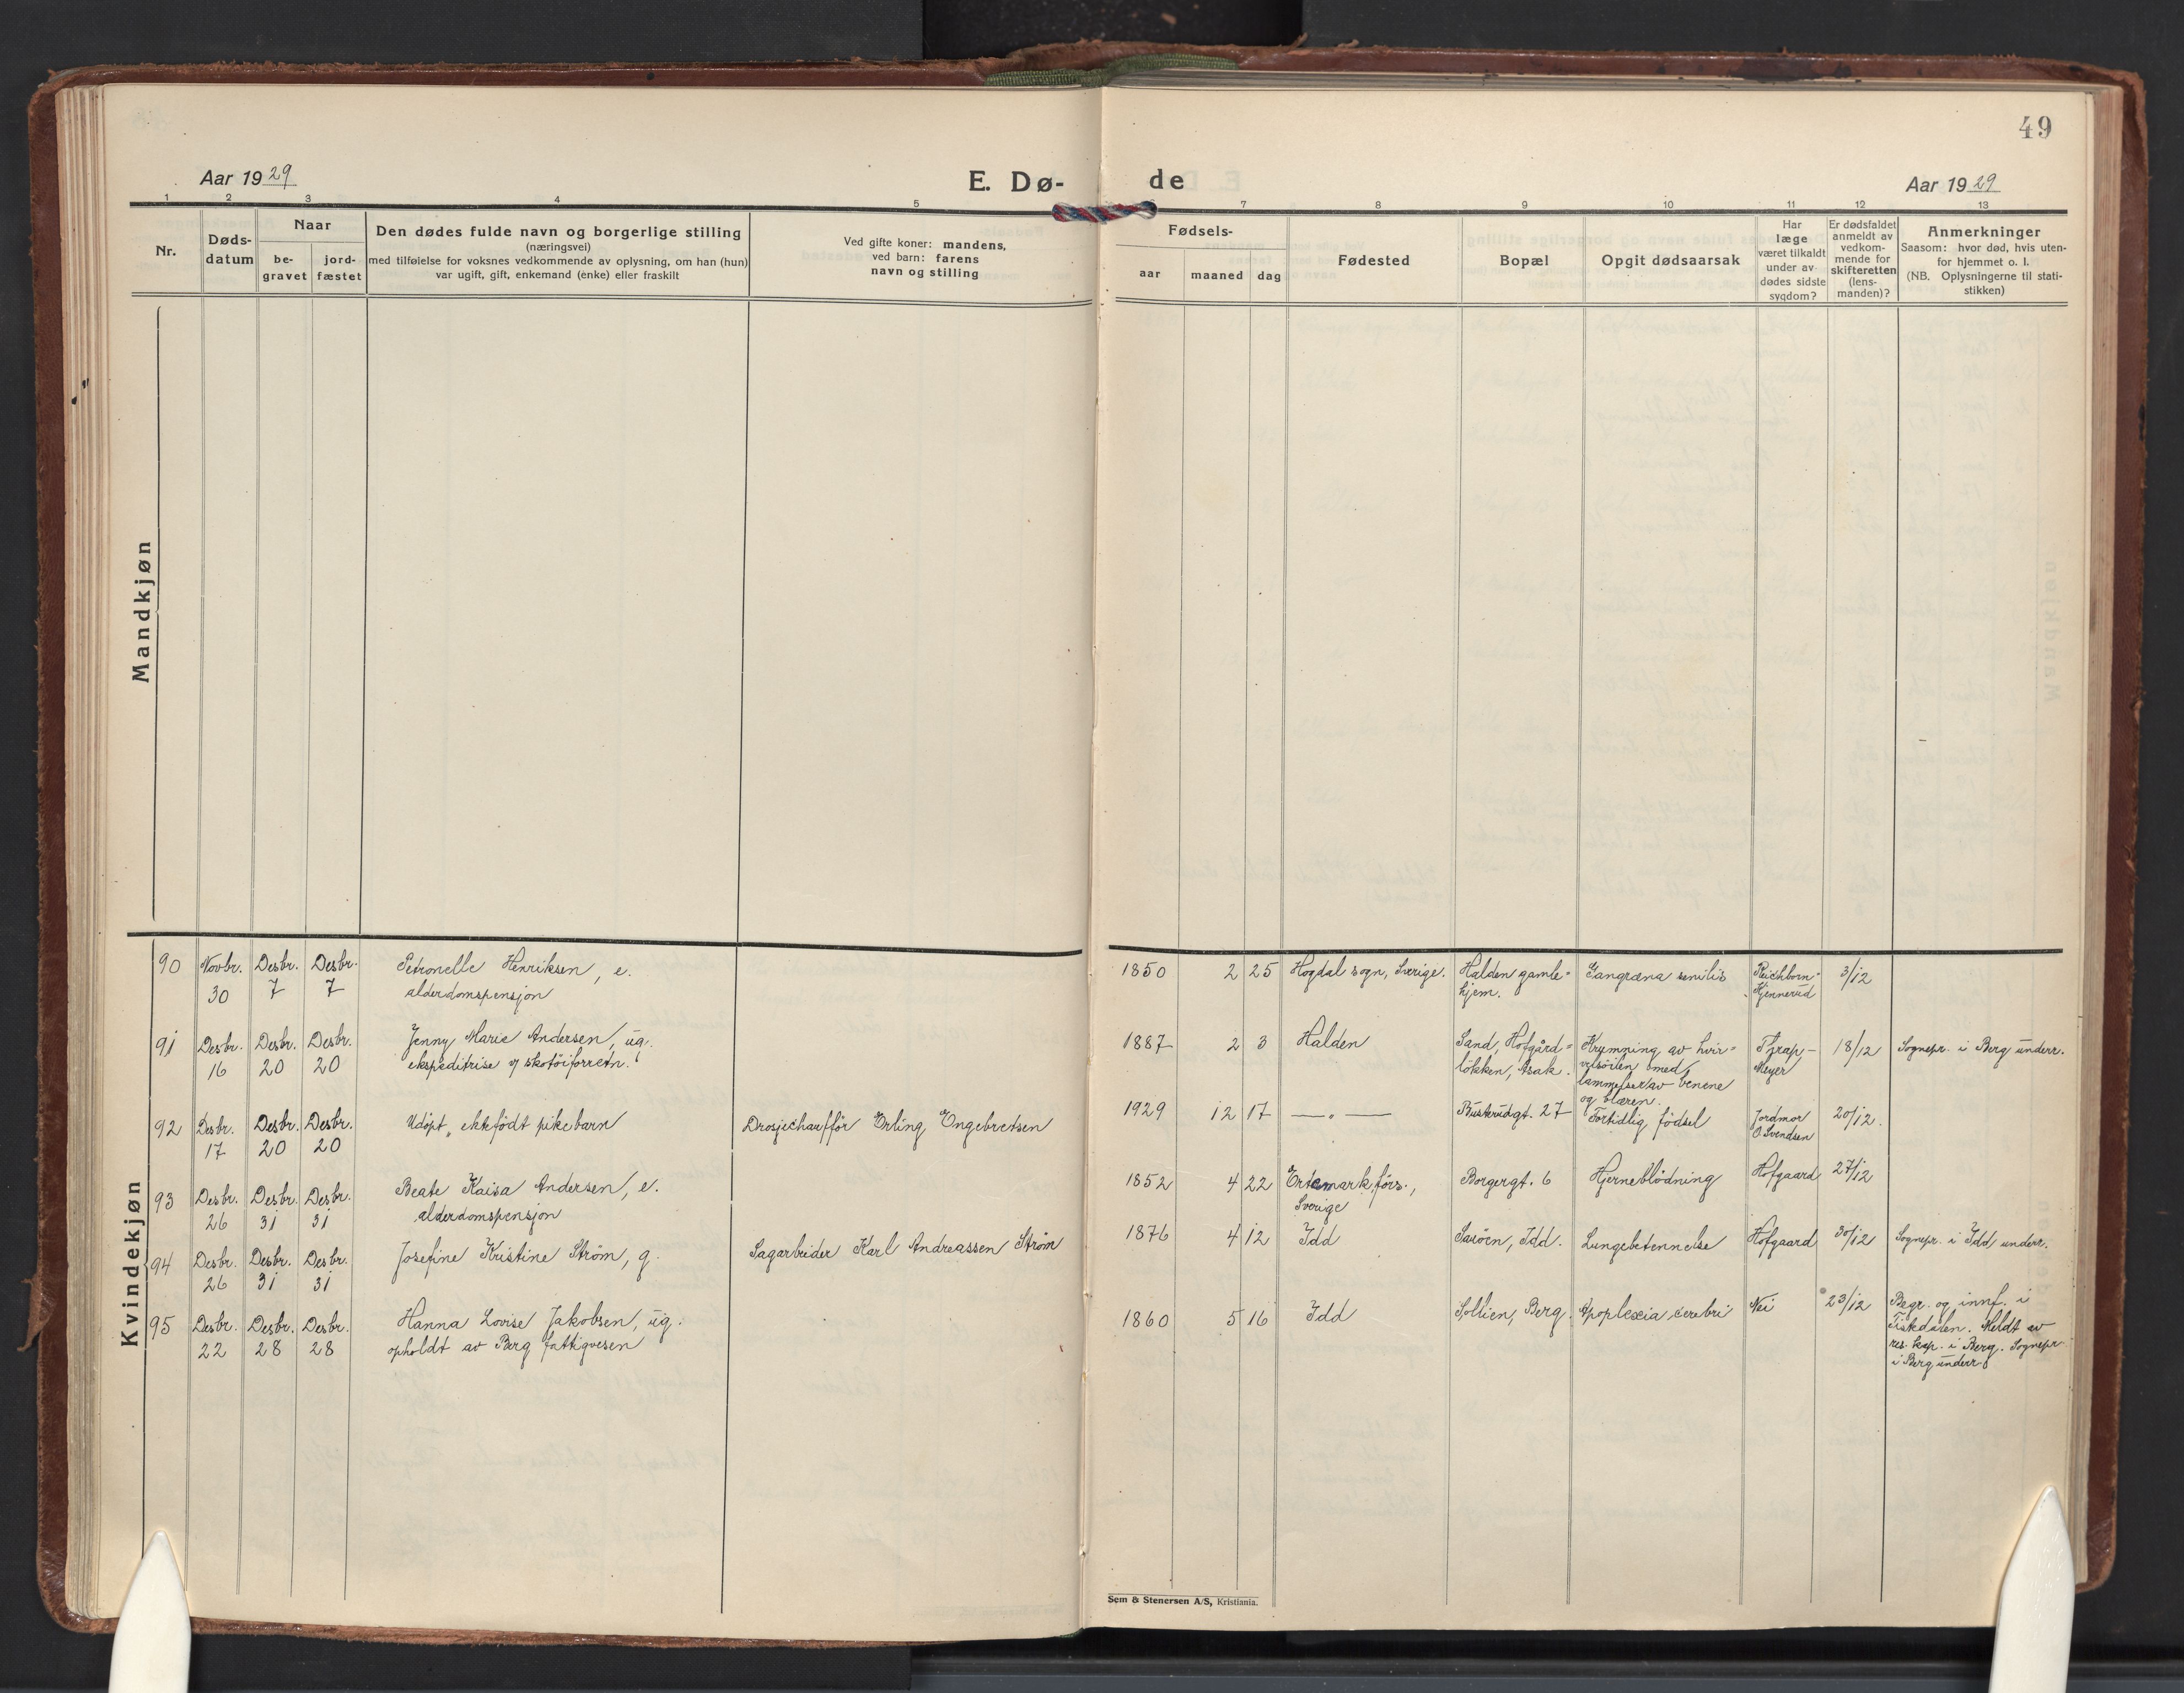 49
Aar 1929
E. Dø-
de
Aar 1929
1 2 3 4 5 7 8 9 10 11 12 13
Nr.
Døds-
datum
Naar
be-
gravet
jord-
fæstet
Den dødes fulde navn og borgerlige stilling
(næringsvei)
med tilføielse for voksnes vedkommende av oplysning, om han (hun)
var ugift, gift, enkemand (enke) eller fraskilt
Ved gifte koner: mandens,
ved barn: farens
navn og stilling
Fødsels-
aar maaned dag
Fødested
Bopæl
Opgit dødsaarsak
Har
læge
været tilkaldt
under av-
dødes sidste
sygdom?
Er dødsfaldet
anmeldt av
vedkom-
mende for
skifteretten
(lens-
manden)?
Anmerkninger
Saasom: hvor død, hvis uten-
for hjemmet o. l.
(NB. Oplysningerne til stati-
stikken)
Mandkjøn
Kvindekjøn
90 Novbr. Desbr. Desbr. Petronelle Henriksen, e. 1850 2 25 Hogdal sogn, Sverige. Halden gamle= Gangræna senilis Reichborn= 3/12
30 7 7 alderdomspensjon hjem. Kjennerud
91 Desbr. Desbr. Desbr. Jenny Marie Andersen, ug. 1887 2 3 Halden Sand, Hofgård= Krymning av hvir= 18/12 Sognepr. i Berg underr.
16 20 20 ekspeditrise skotöiforretn. lökken, Asak. velsöilen med Meyer
lammelser av benene
og blæren.
92 Desbr. Desbr. Desbr. Udöpt, ekkfödt pikebarn Drosjechaufför Erling Engebretsen 1929 12 17 — „ — Buskrudgt. 27 Fortidlig födsel Jordmor 20/12.
17 20 20 O. Svendsen
93 Desbr. Desbr. Desbr. Beate Kaisa Andersen, e. 1852 4 22 Ertemark förs., Borgergt. 6 Hjerneblödning Hofgaard 27/12
26 31 31 alderdomspensjon Sverige
94 Desbr. Desbr. Desbr. Josefine Kristine Ström, g. Sagarbeider Karl Andreassen Ström 1876 4 12 Idd Sauöen, Idd. Lungebetennelse Hofgaard 30/12 Sognepr. i Idd underr.
26 31 31
95 Desbr. Desbr. Desbr. Hanna Lovise Jakobsen, ug. 1860 5 16 Idd Sollien, Berg. Apoplexia cerebri Nei 23/12 Begr. og innf. i
22 28 28 opholdt av Berg fattigvesen Tistedalen. Meldt av
res. kap. i Berg. Sognepr.
i Berg underr.
Sem & Stenersen A/S, Kristiania.